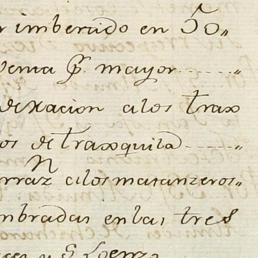 r imbertido en 50„
venia Gl. mayor „
dexacion a los trax
os de traxquila „
rraz a los matanzeros„
mbradas en las tres